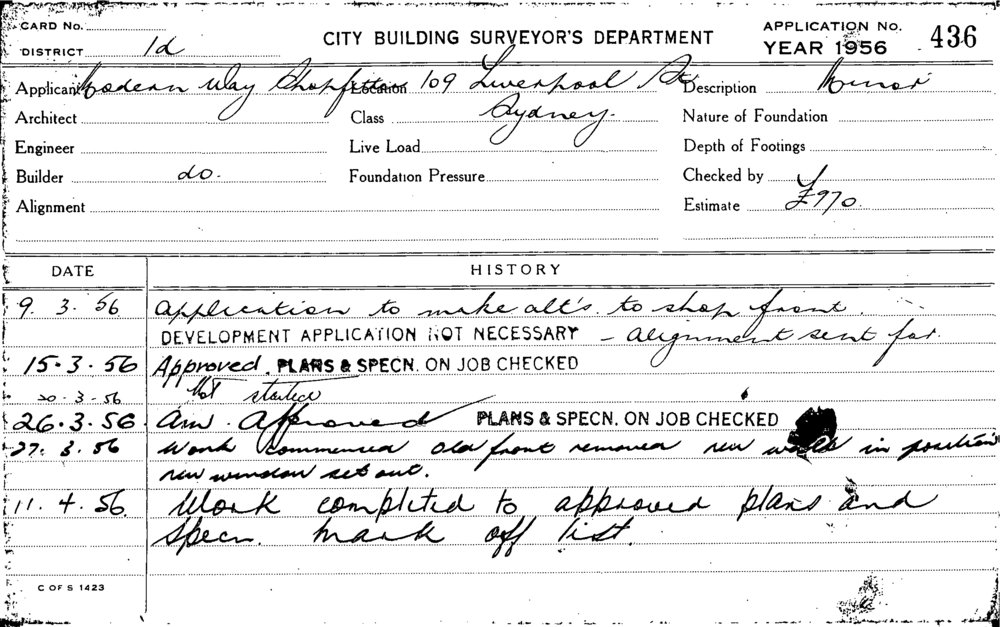 CARD No.
DISTRICT 1d
CITY BUILDING SURVEYOR'S DEPARTMENT
APPLICATION No. 436
YEAR 1956
Applicant Modern Way Shopfitters Location 109 Liverpool St Description Minor
Architect Class Sydney. Nature of Foundation
Engineer Live Load Depth of Footings
Builder do. Foundation Pressure Checked by
Alignment Estimate £970.
DATE HISTORY
9. 3. 56 Application to make alt's. to shop front.
DEVELOPMENT APPLICATION NOT NECESSARY – alignment sent for.
15.3.56 Approved. PLANS & SPECN. ON JOB CHECKED
20-3-56 Not started
26.3.56 Am. Approved PLANS & SPECN. ON JOB CHECKED
27. 3. 56 Work commenced old front removed new walls in position
new window set out.
11. 4. 56. Work completed to approved plans and
specn. mark off list.
C OF S 1423